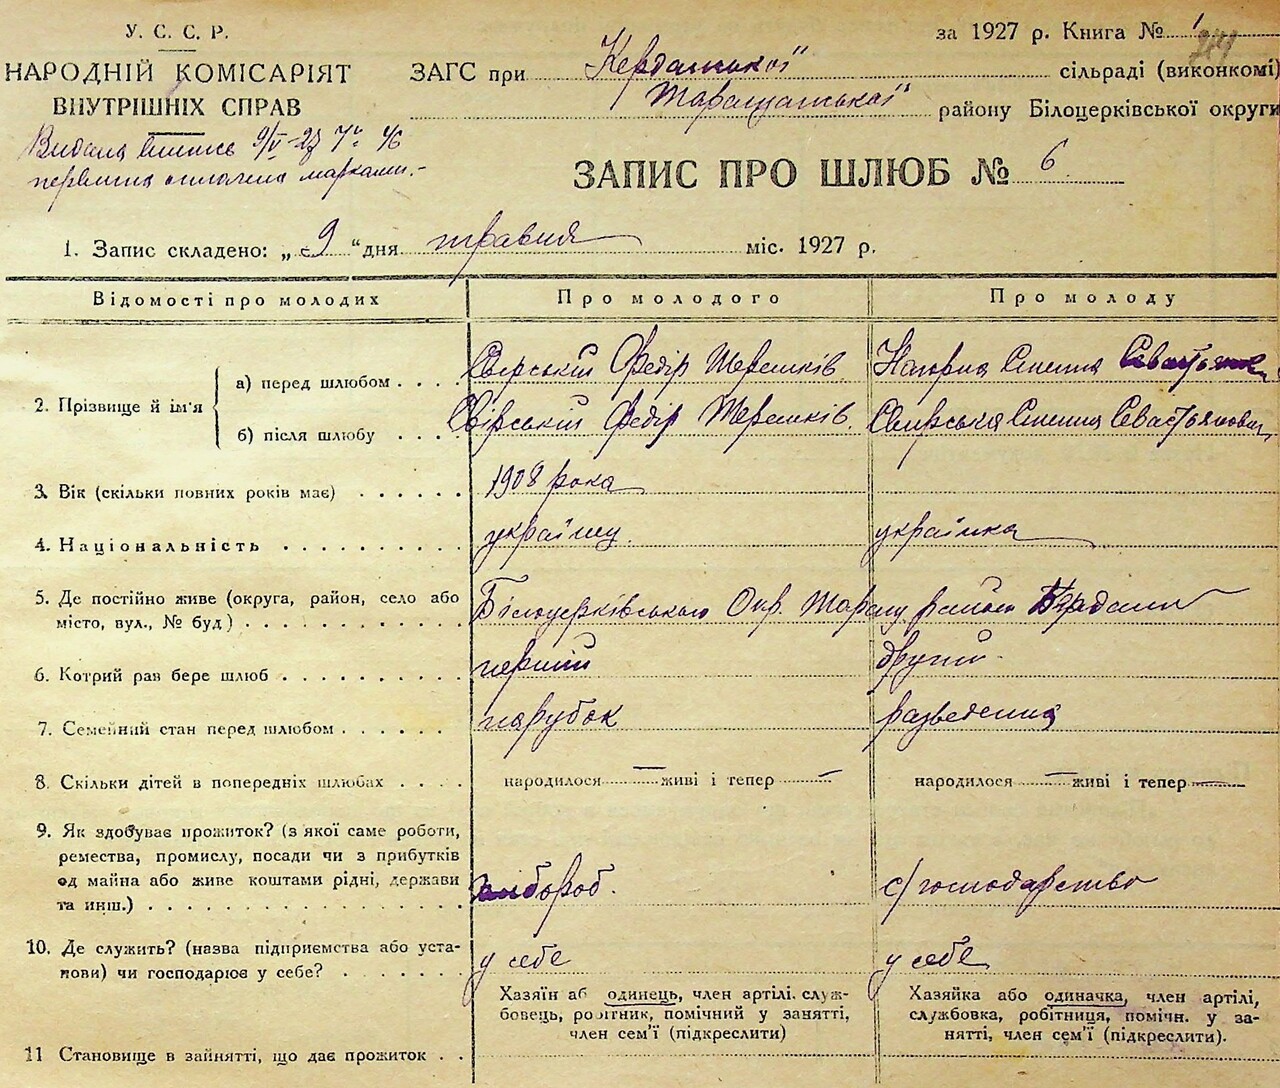 У. С. С. Р.
за 1927 р. Книга № 1
НАРОДНІЙ КОМІСАРІЯТ
ВНУТРІШНІХ СПРАВ
ЗАГС при Кердашської сільраді (виконкомі)
Таращатської району Білоцерківської округи
Видана 9/V
марками.-
ЗАПИС ПРО ШЛЮБ № 6
1. Запис складено: „ 9 “ дня травня міс. 1927 р.
Відомості про молодих Про молодого Про молоду
2. Прізвище й ім'я
а) перед шлюбом . . . . Свірський Федір Терешків. Нагорна
б) після шлюбу . . . . Свірський Федір Терешків. Свирська Севастьяновна
3. Вік (скільки повних років має) . . . . . . 1908 рока
4. Національність . . . . . . . . . . українц. українка
5. Де постійно живе (округа, район, село або
місто, вул., № буд) . . . . . . . . . . Білоцерківського Окр. Таращ. район
6. Котрий раз бере шлюб . . . . . . . . . перший другий.
7. Семейний стан перед шлюбом . . . . . . парубок разведенна
8. Скільки дітей в попередніх шлюбах . . . . народилося — живі і тепер — народилося — живі і тепер —
9. Як здобуває прожиток? (з якої саме роботи,
ремества, промислу, посади чи з прибутків
од майна або живе коштами рідні, держави
та инш.) . . . . . . . . . . . . . . с/господарство
10. Де служить? (назва підприємства або уста-
нови) чи господарює у себе? . . . . . . у себе у себе
Хазяїн аб одинець, член артілі, служ-
бовець, робітник, помічний у занятті,
член сем'ї (підкреслити)
Хазяйка або одиначка, член артілі,
службовка, робітниця, помічн. у за-
нятті, член сем'ї (підкреслити).
11 Становище в зайнятті, що дає прожиток . .